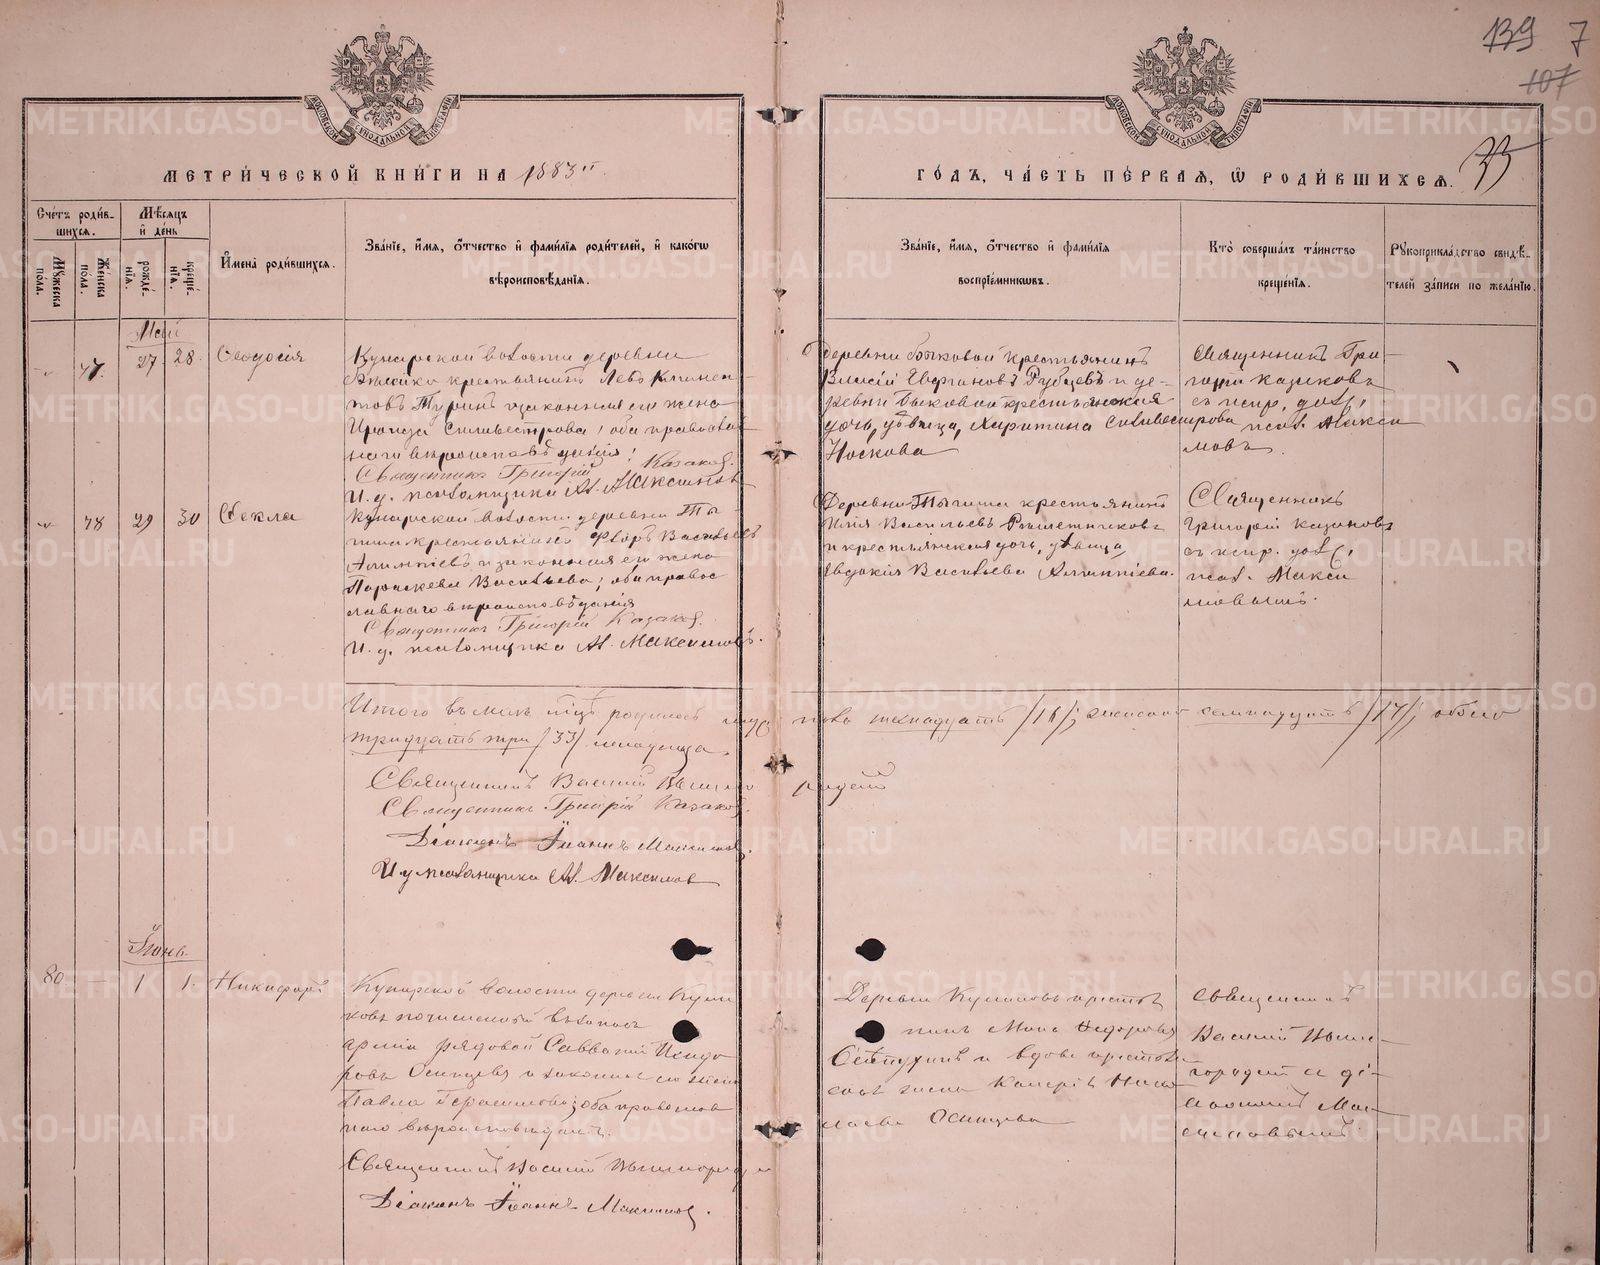 139 7
107
МОСКОВСКОЙ СѴНОДАЛЬНОЙ ТИПОГРАФІИ
МОСКОВСКОЙ СѴНОДАЛЬНОЙ ТИПОГРАФІИ
МЕТРИ́ЧЕСКОЙ КНИ́ГИ НА 1883й
ГО́ДЪ, ЧА́СТЬ ПЕ́РВАЯ, Ѡ РОДИ́ВШИХСЯ.
Сче́тъ роди́в-
шихся.
Мѣ́сяцъ
и҆ де́нь
Му́жеска
по́ла.
Же́нска
по́ла.
рожде́-
нїя.
креще́-
нїя.
И҆мена̀ роди́вшихся.
Зва́нїе, и҆́мя, ѻ҆́тчество и҆ фами́лїя роди́телей, и҆ како́гѡ
вѣроисповѣ́данїя.
Зва́нїе, и҆́мя, ѻ҆́тчество и҆ фами́лїя
воспрїе́мникѡвъ.
Кто̀ соверша́лъ та́инство
креще́нїя.
Рукоприкла́дство свидѣ́-
телей за́писи по жела́нїю.
Май
77. 27 28. Ѳеодосія
Кунарской волости деревни
крестьянинъ Левъ Климен-
товъ Туринъ и законная его жена
Ираида Сильвестрова; оба православ
наго вѣроисповѣданія;
Священникъ Григорій Казаков.
И. д. псаломщика Ал. Максимовъ
деревни Быковой крестьянинъ
Рубцевъ и де-
ревни Быковой крестьянская
дочь, дѣвица, Харитина Сильвестрова
Носкова
Священникъ Гри-
горій Казаковъ
съ испр. долж.
псал. Макси
мовъ
78 29 30 Ѳекла
Кунарской волости деревни Ты-
гиша крестьянинъ Ѳедоръ Васильевъ
Алимпіевъ и законная его жена
Параскева Васильева; оба правос
лавнаго вѣроисповѣданія
Священникъ Григорій Казаков.
И. д. псаломщика Ал. Максимовъ.
Деревни Тыгиша крестьянинъ
Илія Васильевъ Рѣшетниковъ
и крестьянская дочь, дѣвица,
Евдокія Васильева Алимпіева.
Священникъ
Григорій Казаковъ
съ испр. долж.
псал. Макси
мовымъ.
Итого въ маѣ мцѣ родилось мужескаго пола шестнадцать /16/; женскаго семнадцать /17/; обоего
тридцать три /33/ младенца.
Священникъ Василій Вышегородскій
Священникъ Григорій Казаков.
Діаконъ Іоаннъ Максимов.
И. д. псаломщика Ал. Максимов
Іюнь.
80. — 1 1. Никифоръ
Кунарской волости деревни Кули
ковъ въ запас
арміи рядовой Савватій Исидо
ровъ Осинцевъ и законная его жена
Павла Герасимова; оба православ
наго вѣроисповѣданія.
Священникъ Василій Вышегородскій
Діаконъ Іоаннъ Максимов.
Деревни Куликовъ крестья
нинъ Ѳедоровъ
и вдова крестьян
ская жена Нико-
лаева Осинцева
Священникъ
Василій Выше-
городскій съ ді-
акономъ Мак-
симовымъ.
METRIKI.GASO-URAL.RU